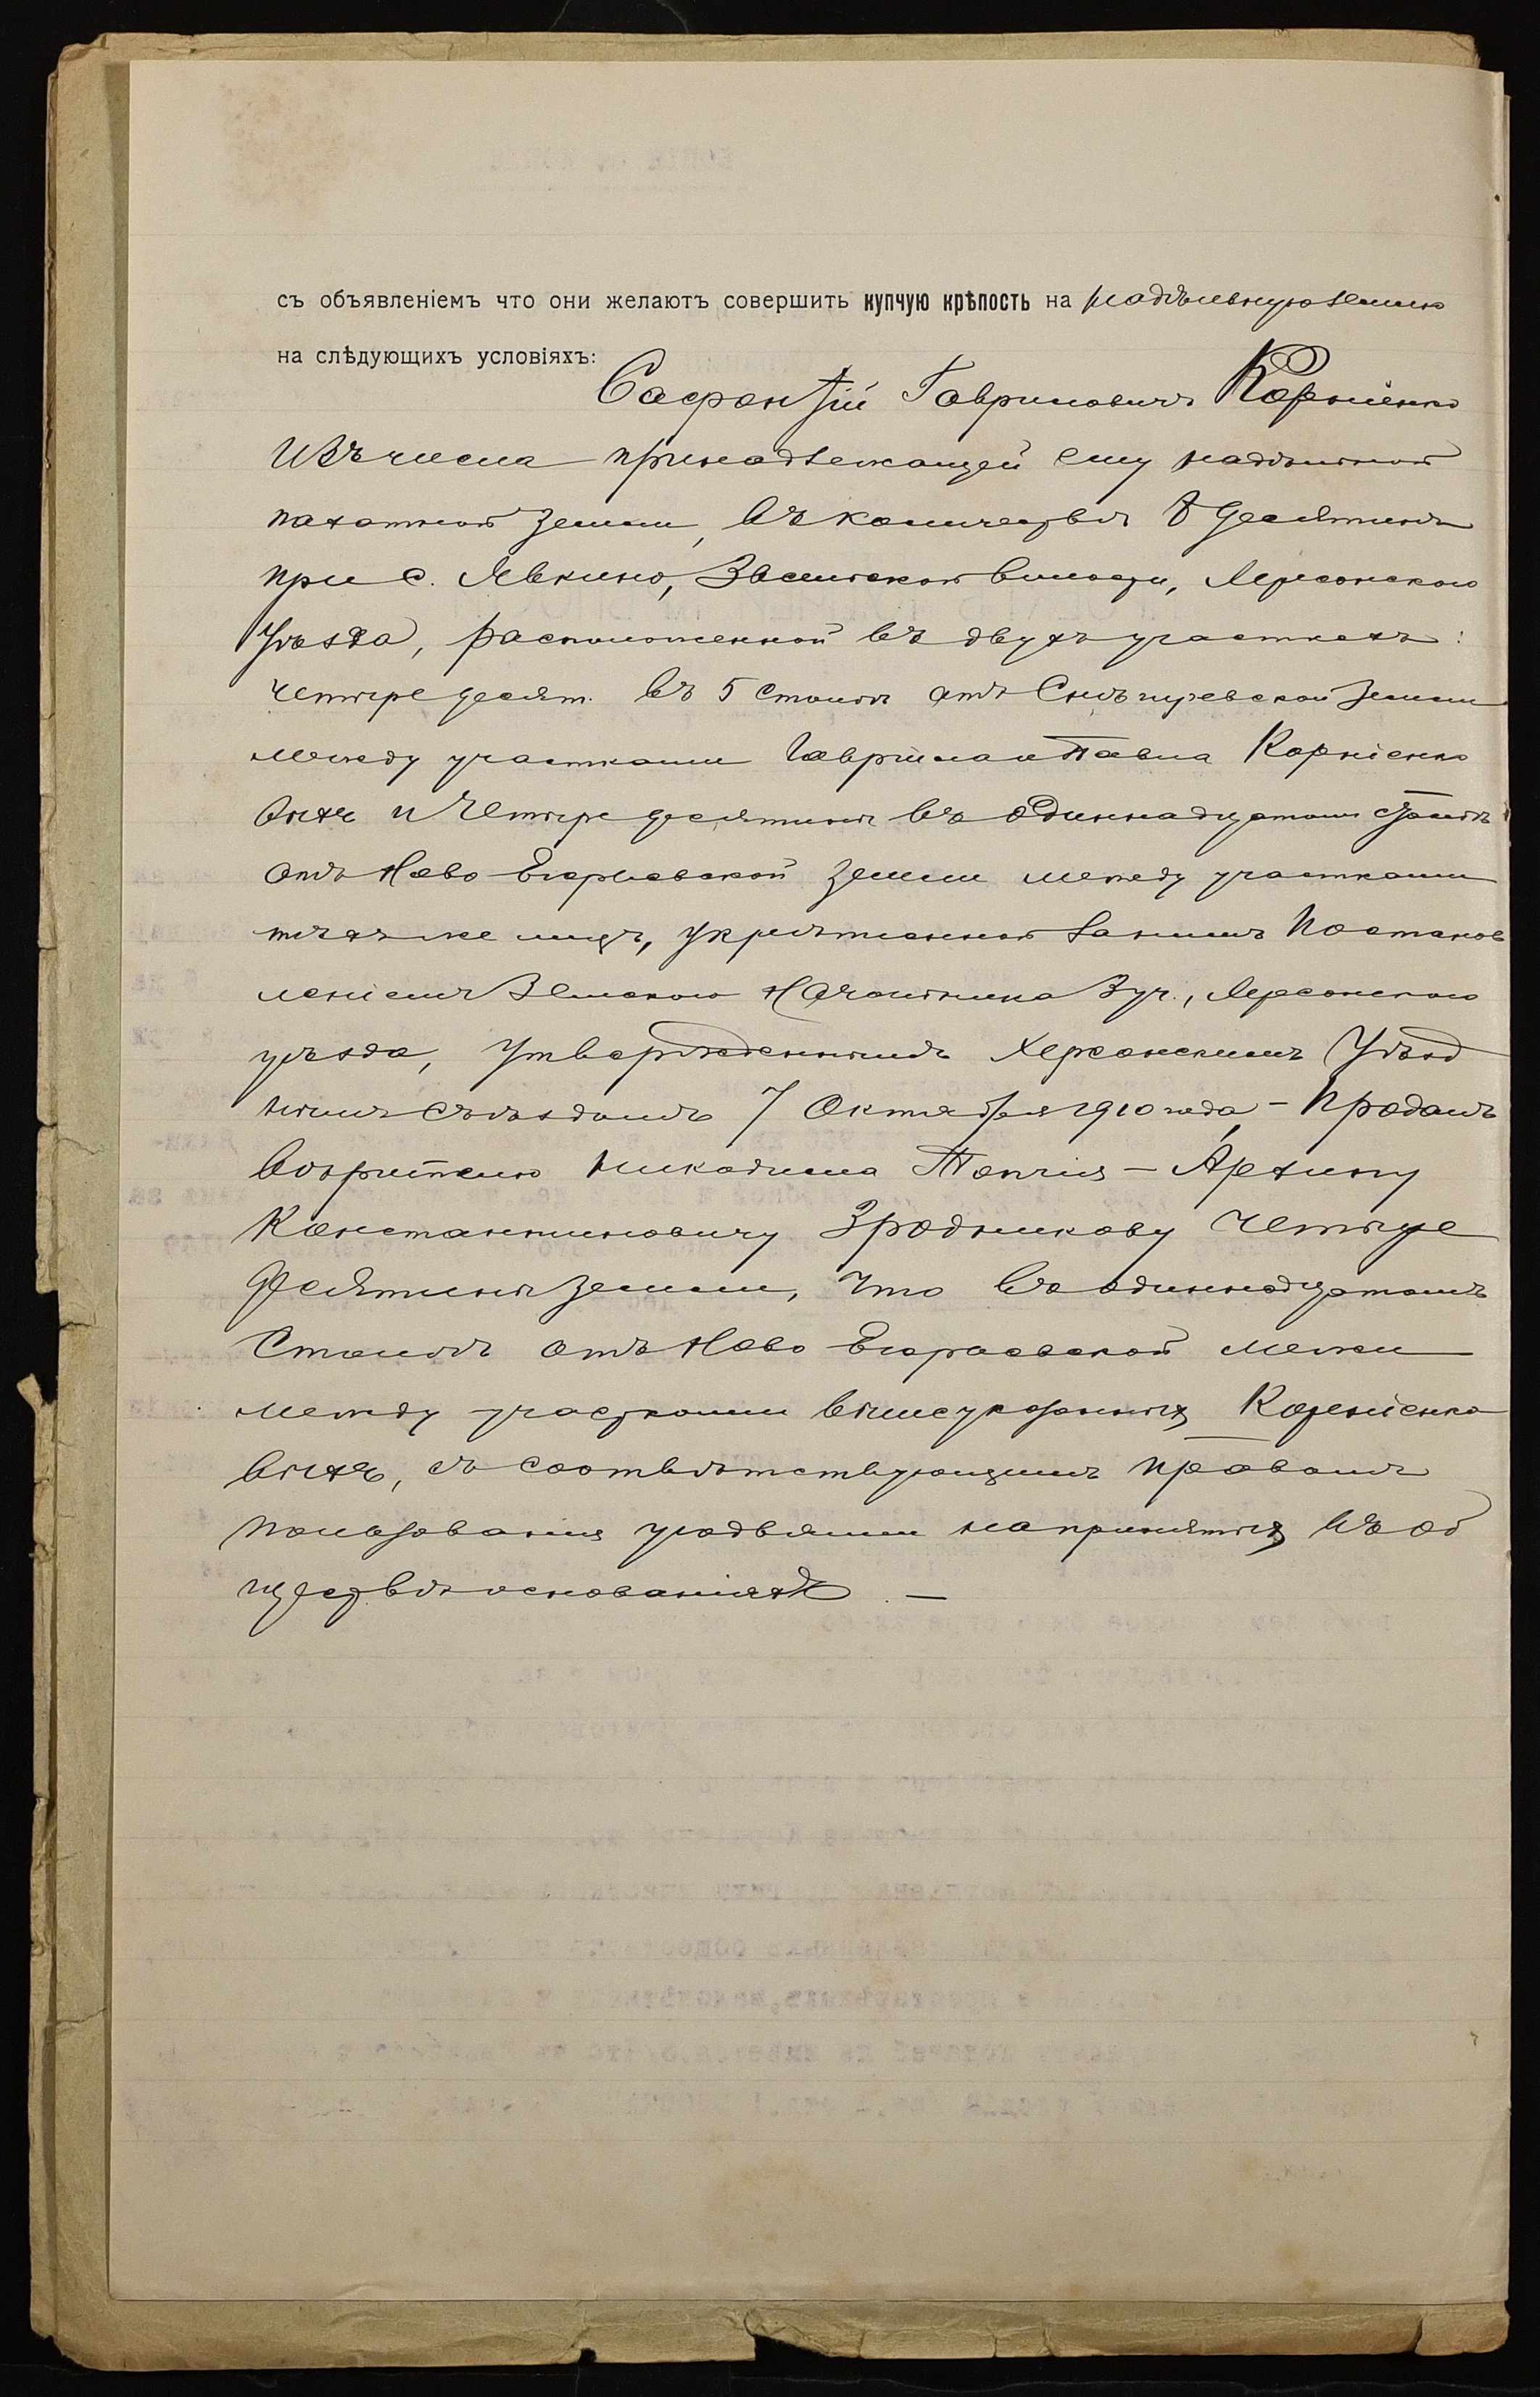 съ объявленіемъ что они желаютъ совершить купчую крѣпость на надѣльную землю
на слѣдующихъ условіяхъ:
Гавриловичъ Корніенко
Изъ числа принадлежащей ему надѣльной
пахатной земли, въ количествѣ 8 десятинъ
при с. Явкино, волости, Херсонскаго
Уѣзда, расположенной въ двухъ участкахъ:
четыре десят. въ 5 столпѣ отъ Снѣгиревской земли
между участками Гавріила и Павла Корніенко
выхъ и четыре десятины въ одиннадцатомъ столпѣ
отъ Ново Егорьевской земли между участками
тѣхъ же лицъ, укрѣпленной за нимъ Постанов
леніемъ Земскаго Начальника 3 уч., Херсонскаго
уѣзда, утвержденнымъ Херсонскимъ Уѣзд
нымъ съѣздомъ 7 Октября 1910 года, - продалъ
Никодима Топчія - Архипу
Константиновичу Зродникову четыре
десятины земли, что въ одиннадцатомъ
столпѣ отъ Ново Егорьевской межи
между участками вышеуказанныхъ Корніенко
выхъ, съ соотвѣтствующимъ правомъ
пользованія угодьями на принятыхъ въ об
ществѣ основаніяхъ. —